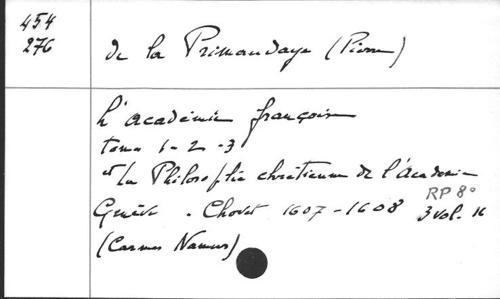 454
276
de la Primaudaye (Pierre)
L'académie françoise
tome 1-2-3
et la Philosophie chrétienne de l'Académie
Genève. Chouet 1607-1608 3 vol. 16
RP 8°
(Carmes Namur)